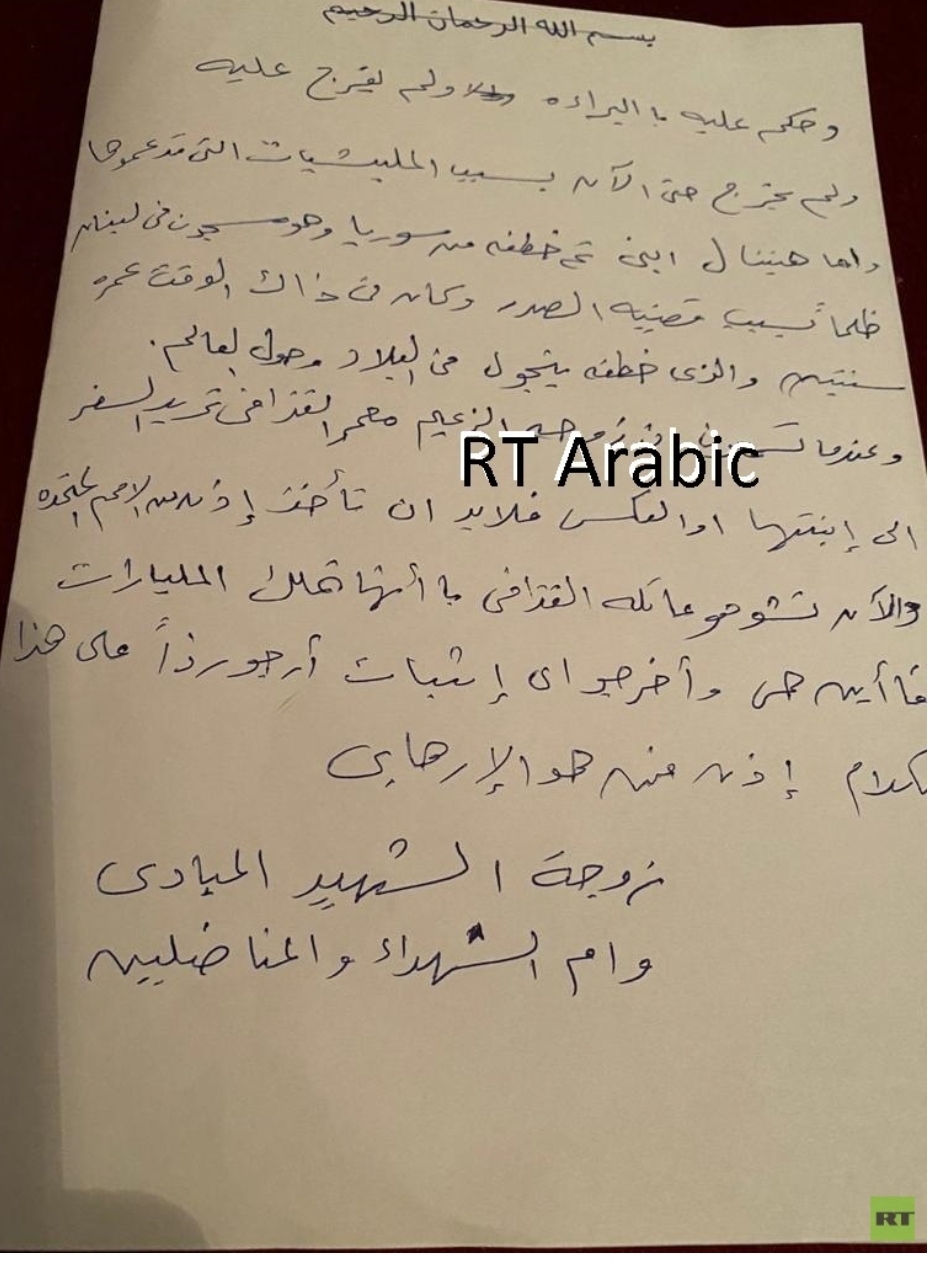 بسم الله الرحمان الرحيم
وحكم عليه با البراءه ولم يفرج عليه
ولم يخرج حتى الآن بسبب المليشيات التى تدعموها
واما هنيبال ابنى تم خطفه من سوريا وهو مسجون فى لبنان
ظلماً بسبب قضيه الصدر وكان فى ذاك الوقت عمره
سنتين والذى خطفه يتجول فى البلاد وحول العالم.
وعندما الزعيم معمر القذافى تريد السفر
RT Arabic
الى إبنتها او العكس فلابد ان تأخذ إذن من الامم المتحده
والآن تشوهو عائله القذافى با أنها تملك المليارات
فأأين هى وأخرجو اى إثبات أرجو رداً على هذا
كلام إذن من هو الإرهابى
زوجة الشهيد المبادى
وام الشهداء والمناضليين
RT